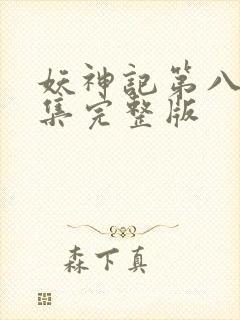 妖神記第八
集完整版
森下真